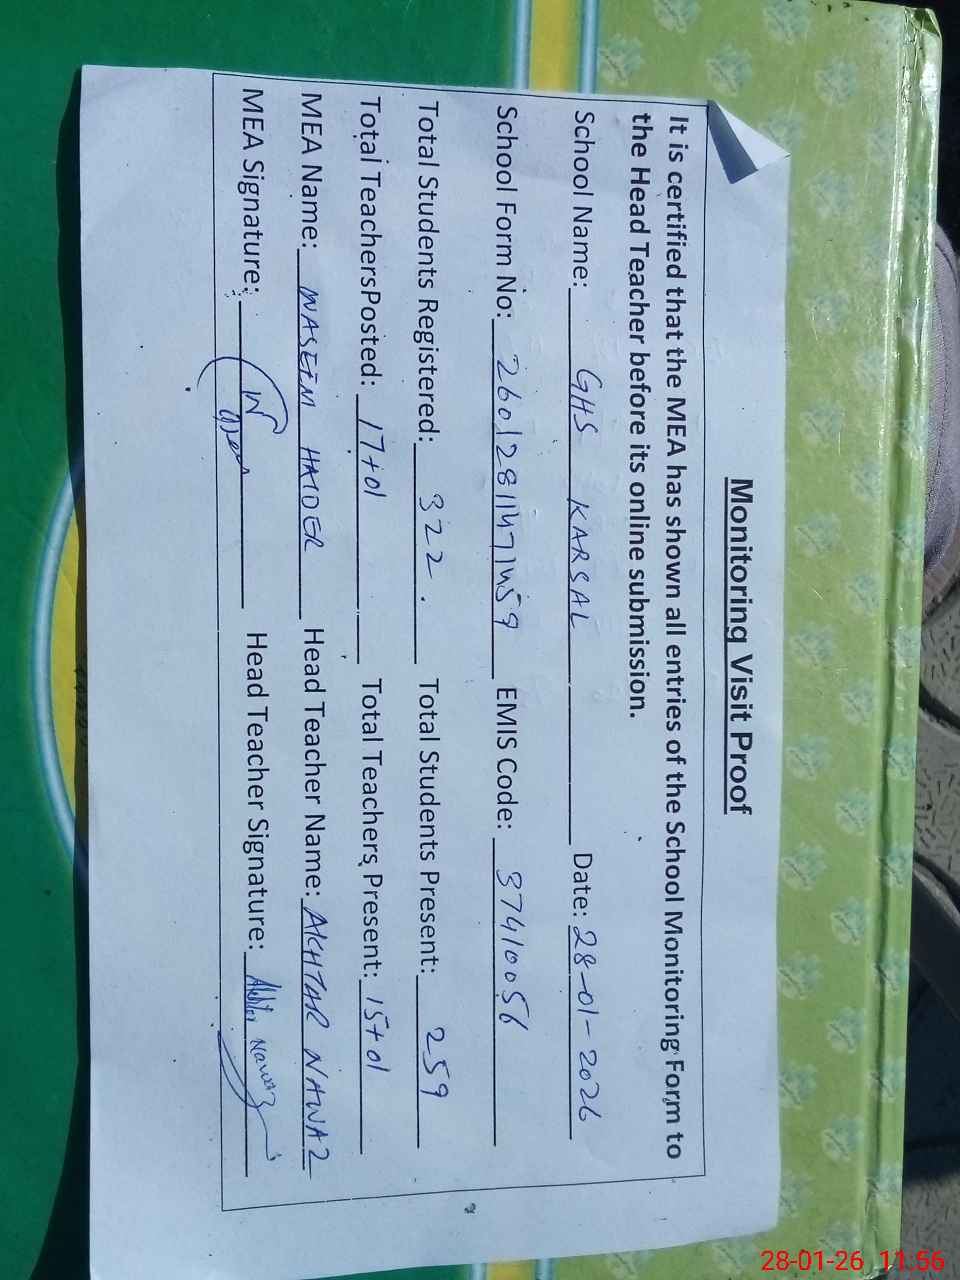 Monitoring Visit Proof
It is certified that the MEA has shown all entries of the School Monitoring Form to
the Head Teacher before its online submission.
School Name: GHS KARSAL Date: 28-01-2026
School Form No: 26012811471459 EMIS Code: 37410056
Total Students Registered: 322. Total Students Present: 259
Total TeachersPosted: 17+01 Total Teachers Present: 15+01
MEA Name: WASEEM HAIDER Head Teacher Name: AKHTAR NAWAZ
MEA Signature: Head Teacher Signature: Akhtar Nawaz
28-01-26 11:56